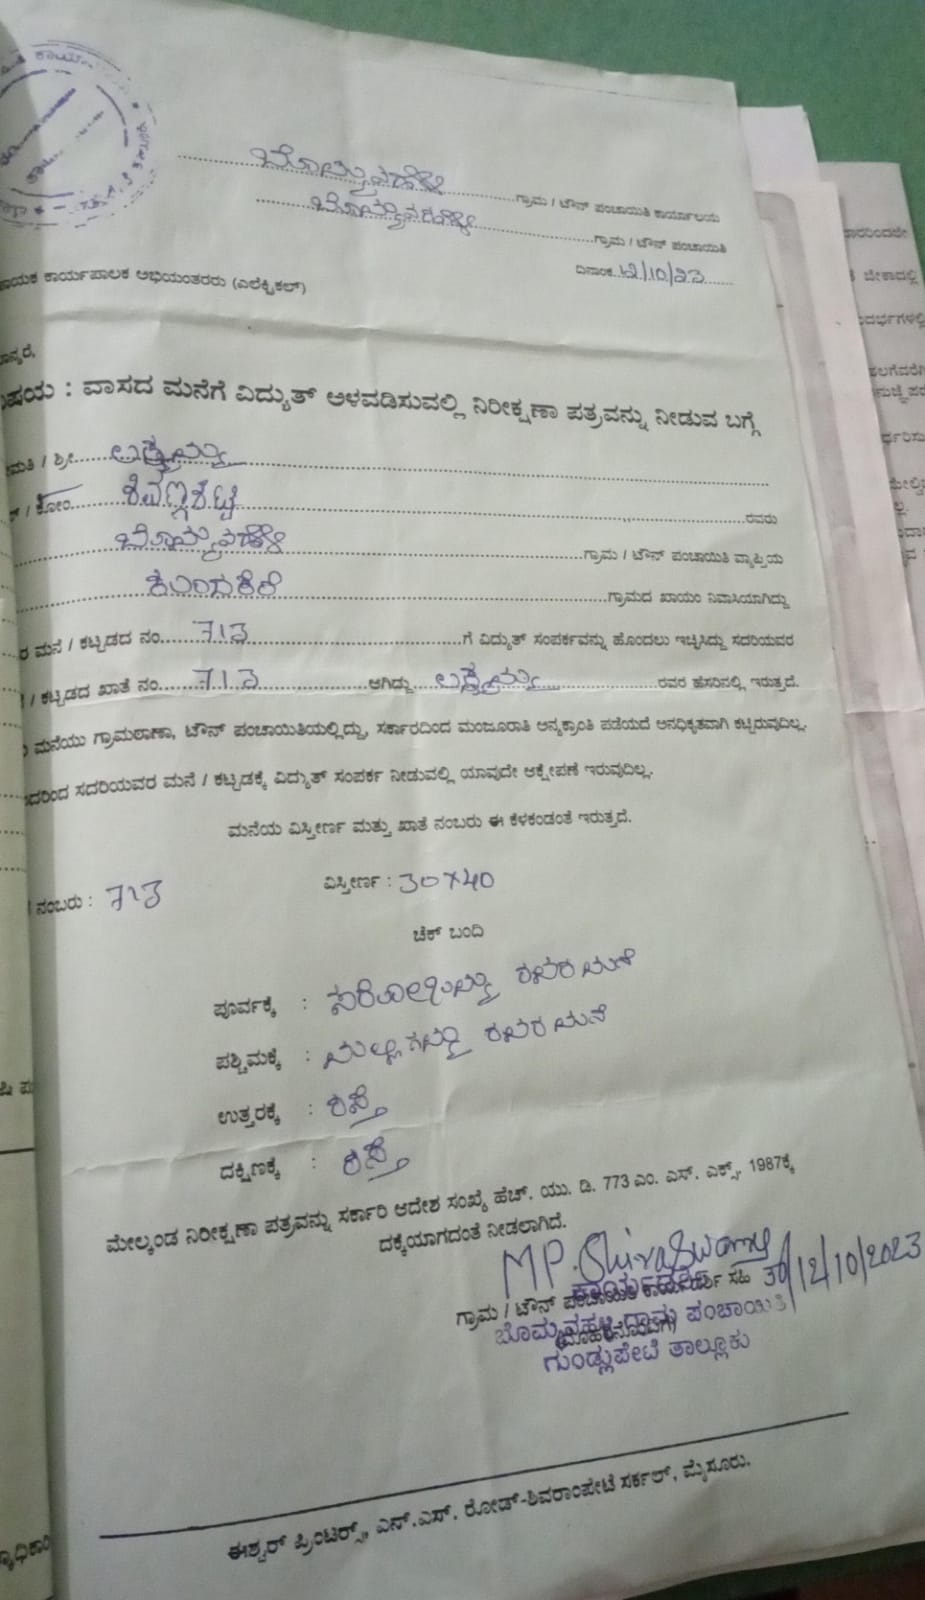 ಬೊಮ್ಮನಹಳ್ಳಿ ಗ್ರಾಮ / ಟೌನ್ ಪಂಚಾಯಿತಿ ಕಾರ್ಯಾಲಯ
ಬೊಮ್ಮನಹಳ್ಳಿ ಗ್ರಾಮ / ಟೌನ್ ಪಂಚಾಯಿತಿ
ದಿನಾಂಕ 12/10/23
ಕಾರ್ಯಪಾಲಕ ಅಭಿಯಂತರರು (ಎಲೆಕ್ಟ್ರಿಕಲ್)
: ವಾಸದ ಮನೆಗೆ ವಿದ್ಯುತ್ ಅಳವಡಿಸುವಲ್ಲಿ ನಿರೀಕ್ಷಣಾ ಪತ್ರವನ್ನು ನೀಡುವ ಬಗ್ಗೆ
/ ಶ್ರೀ
/ ಕೋಂ ಶಿವಣ್ಣಶೆಟ್ಟಿ ರವರು
ಬೊಮ್ಮನಹಳ್ಳಿ ಗ್ರಾಮ / ಟೌನ್ ಪಂಚಾಯಿತಿ ವ್ಯಾಪ್ತಿಯ
ಕುಂದಕೆರೆ ಗ್ರಾಮದ ಖಾಯಂ ನಿವಾಸಿಯಾಗಿದ್ದು
ಮನೆ / ಕಟ್ಟಡದ ನಂ. 713 ಗೆ ವಿದ್ಯುತ್ ಸಂಪರ್ಕವನ್ನು ಹೊಂದಲು ಇಚ್ಛಿಸಿದ್ದು ಸದರಿಯವರ
/ ಕಟ್ಟಡದ ಖಾತೆ ನಂ. 713 ಆಗಿದ್ದು ರವರ ಹೆಸರಿನಲ್ಲಿ ಇರುತ್ತದೆ.
ಮನೆಯು ಗ್ರಾಮಠಾಣಾ, ಟೌನ್ ಪಂಚಾಯಿತಿಯಲ್ಲಿದ್ದು, ಸರ್ಕಾರದಿಂದ ಮಂಜೂರಾತಿ ಅನ್ಯಕ್ರಾಂತಿ ಪಡೆಯದೆ ಅನಧಿಕೃತವಾಗಿ ಕಟ್ಟಿರುವುದಿಲ್ಲ.
ಸದರಿಯವರ ಮನೆ / ಕಟ್ಟಡಕ್ಕೆ ವಿದ್ಯುತ್ ಸಂಪರ್ಕ ನೀಡುವಲ್ಲಿ ಯಾವುದೇ ಆಕ್ಷೇಪಣೆ ಇರುವುದಿಲ್ಲ.
ಮನೆಯ ವಿಸ್ತೀರ್ಣ ಮತ್ತು ಖಾತೆ ನಂಬರು ಈ ಕೆಳಕಂಡಂತೆ ಇರುತ್ತದೆ.
ನಂಬರು : 713 ವಿಸ್ತೀರ್ಣ : 30×40
ಚೆಕ್ ಬಂದಿ
ಪೂರ್ವಕ್ಕೆ : ರವರ ಮನೆ
ಪಶ್ಚಿಮಕ್ಕೆ : ರವರ ಮನೆ
ಉತ್ತರಕ್ಕೆ : ರಸ್ತೆ
ದಕ್ಷಿಣಕ್ಕೆ : ರಸ್ತೆ
ಮೇಲ್ಕಂಡ ನಿರೀಕ್ಷಣಾ ಪತ್ರವನ್ನು ಸರ್ಕಾರಿ ಆದೇಶ ಸಂಖ್ಯೆ ಹೆಚ್. ಯು. ಡಿ. 773 ಎಂ. ಎಸ್. ಎಕ್ಸ್. 1987ಕ್ಕೆ
ದಕ್ಕೆಯಾಗದಂತೆ ನೀಡಲಾಗಿದೆ.
MP. Shivaswamy 12/10/2023
ಕಾರ್ಯದರ್ಶಿ
ಗ್ರಾಮ / ಟೌನ್ ಪಂಚಾಯಿತಿ ಕಾರ್ಯದರ್ಶಿ ಸಹಿ
ಬೊಮ್ಮನಹಳ್ಳಿ ಗ್ರಾಮ ಪಂಚಾಯಿತಿ
(ಮೊಹರಿನೊಂದಿಗೆ)
ಗುಂಡ್ಲುಪೇಟೆ ತಾಲ್ಲೂಕು
ಈಶ್ವರ್ ಪ್ರಿಂಟರ್ಸ್, ಎನ್.ಎಸ್. ರೋಡ್-ಶಿವರಾಂಪೇಟೆ ಸರ್ಕಲ್, ಮೈಸೂರು.